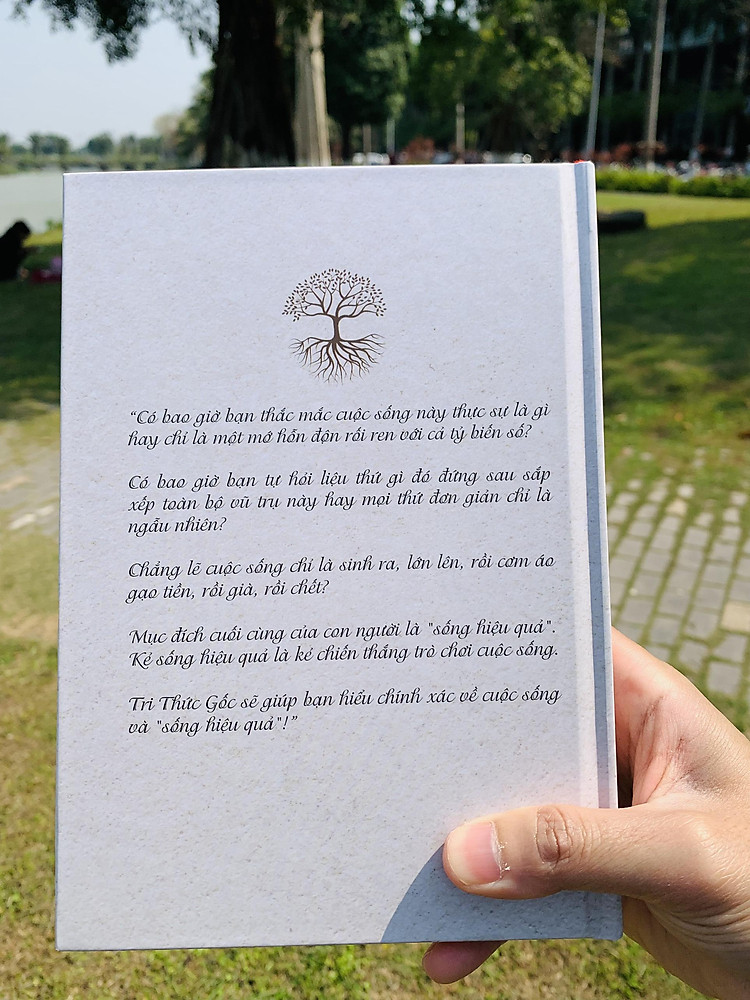 “Có bao giờ bạn thắc mắc cuộc sống này thực sự là gì
hay chỉ là một mớ hỗn độn rối ren với cả tỷ biến số?
Có bao giờ bạn tự hỏi liệu thứ gì đó đứng sau sắp
xếp toàn bộ vũ trụ này hay mọi thứ đơn giản chỉ là
ngẫu nhiên?
Chẳng lẽ cuộc sống chỉ là sinh ra, lớn lên, rồi cơm áo
gạo tiền, rồi già, rồi chết?
Mục đích cuối cùng của con người là "sống hiệu quả".
Kẻ sống hiệu quả là kẻ chiến thắng trò chơi cuộc sống.
Tri Thức Gốc sẽ giúp bạn hiểu chính xác về cuộc sống
và "sống hiệu quả"!”